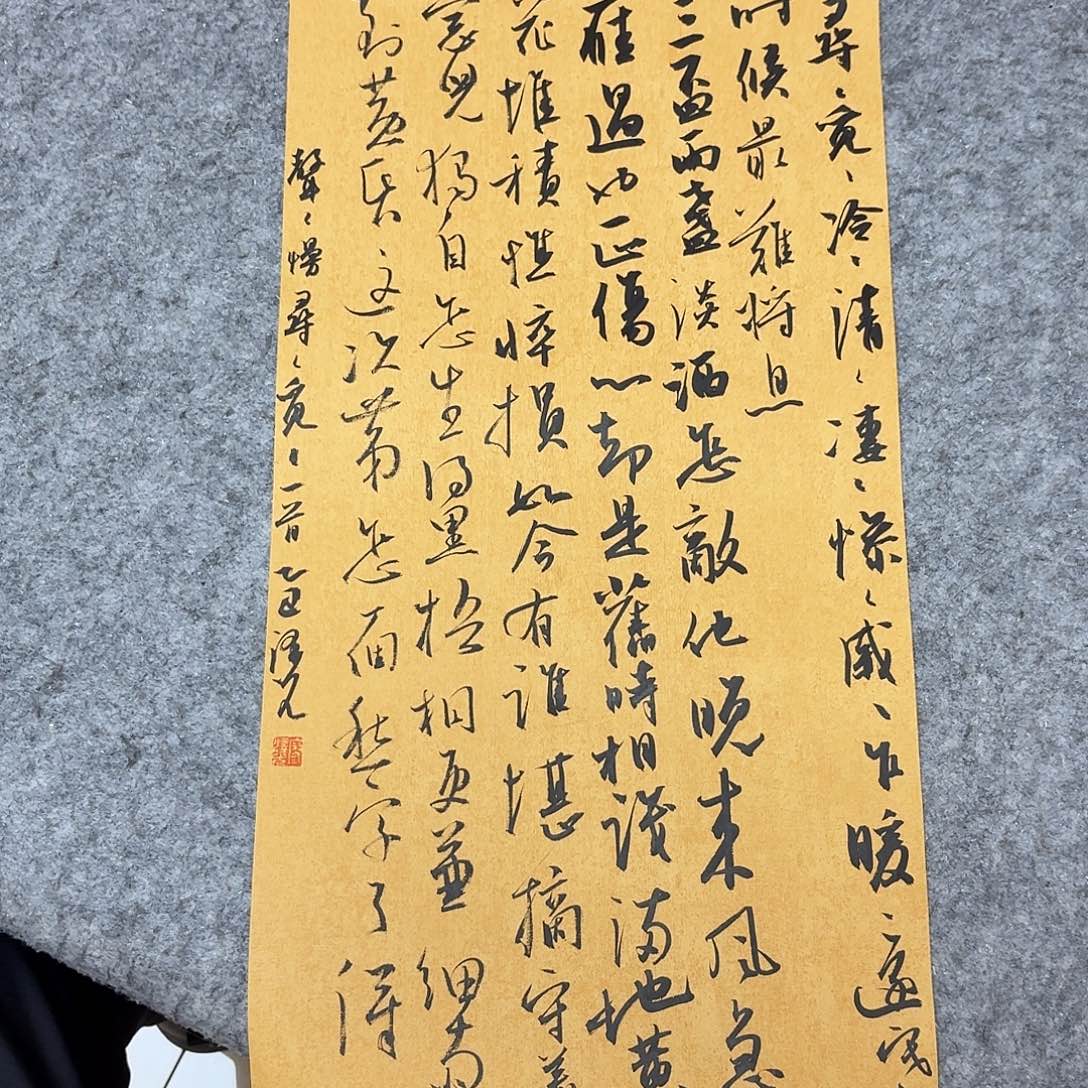 尋〻覓〻冷〻清〻凄〻慘〻戚〻乍暖〻還寒
時候最難將息
三盃兩盞淡酒怎敵他晚來風急
雁過也正傷心却是舊時相識滿地黄
花堆積憔悴損如今有誰堪摘守着
窓兒獨自怎生得黑梧桐更兼細雨
到黄昏這次第怎個愁字了得
聲〻慢尋〻覓〻一首